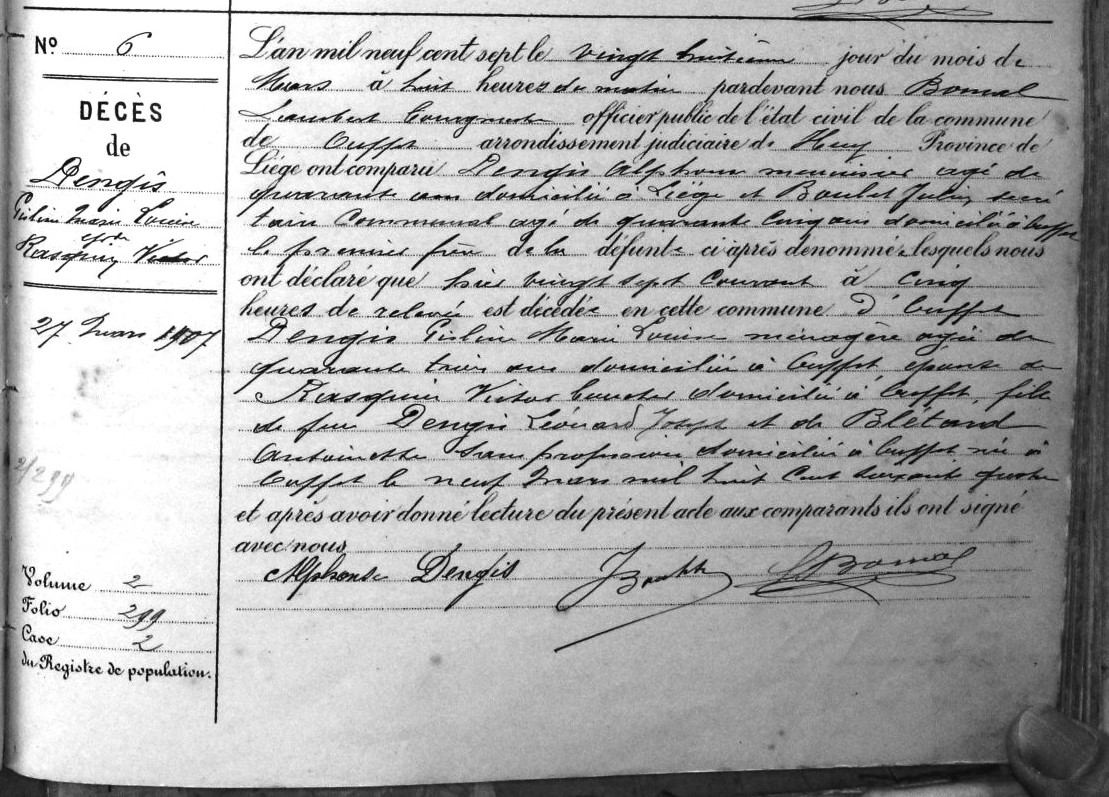 Nº 6
DÉCÈS
de
Dengis
Gislin Marie Louise
épse
Rasquin Victor
27 Mars 1907
2/299
Volume 2
Folio 299
Case 2
du Registre de population.
L'an mil neuf cent sept le vingt huitième jour du mois de
Mars à huit heures du matin pardevant nous Bomal
Lambert officier public de l'état civil de la commune
de Ouffet arrondissement judiciaire de Huy Province de
Liége ont comparu Dengis Alphonse menuisier agé de
quarante ans domicilié à Liége et Boulet Julien secré
taire Communal agé de quarante cinq ans domicilié à Ouffet
le premier frère de la défunte ci après dénommée lesquels nous
ont déclaré que hier vingt sept courant à cinq
heures de relevée est décédée en cette commune d'Ouffet
Dengis Gislin Marie Louise ménagère agée de
quarante trois ans domiciliée à Ouffet, épouse de
Rasquin Victor boucher domicilié à Ouffet, fille
de feu Dengis Léonard Joseph et de Blétard
Antoinette sans profession domiciliée à Ouffet née à
Ouffet le neuf Mars mil huit cent soixante quatre
et après avoir donné lecture du présent acte aux comparants ils ont signé
avec nous
Alphonse Dengis JBoulet LBomal